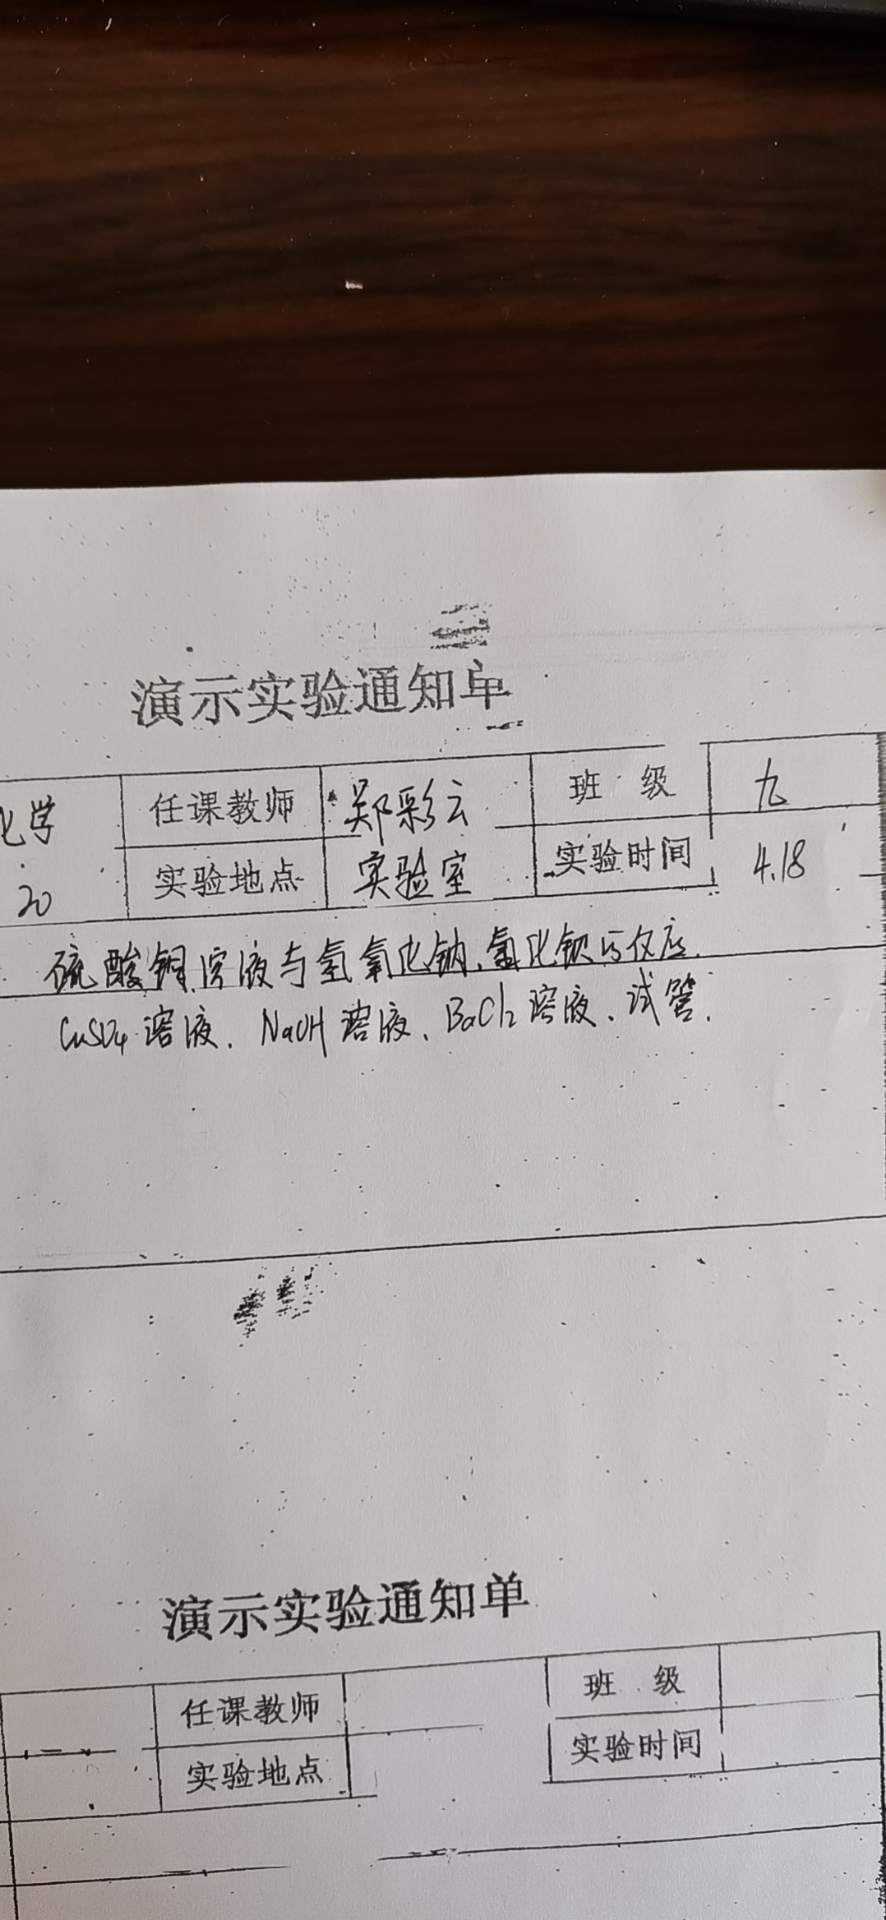 演示实验通知单
化学 任课教师 郑彩云 班 级 九
20 实验地点 实验室 实验时间 4.18
硫酸铜溶液与氢氧化钠、氯化钡的反应.
CuSO4溶液、NaOH溶液、BaCl2溶液、试管.
演示实验通知单
任课教师 班 级
实验地点 实验时间